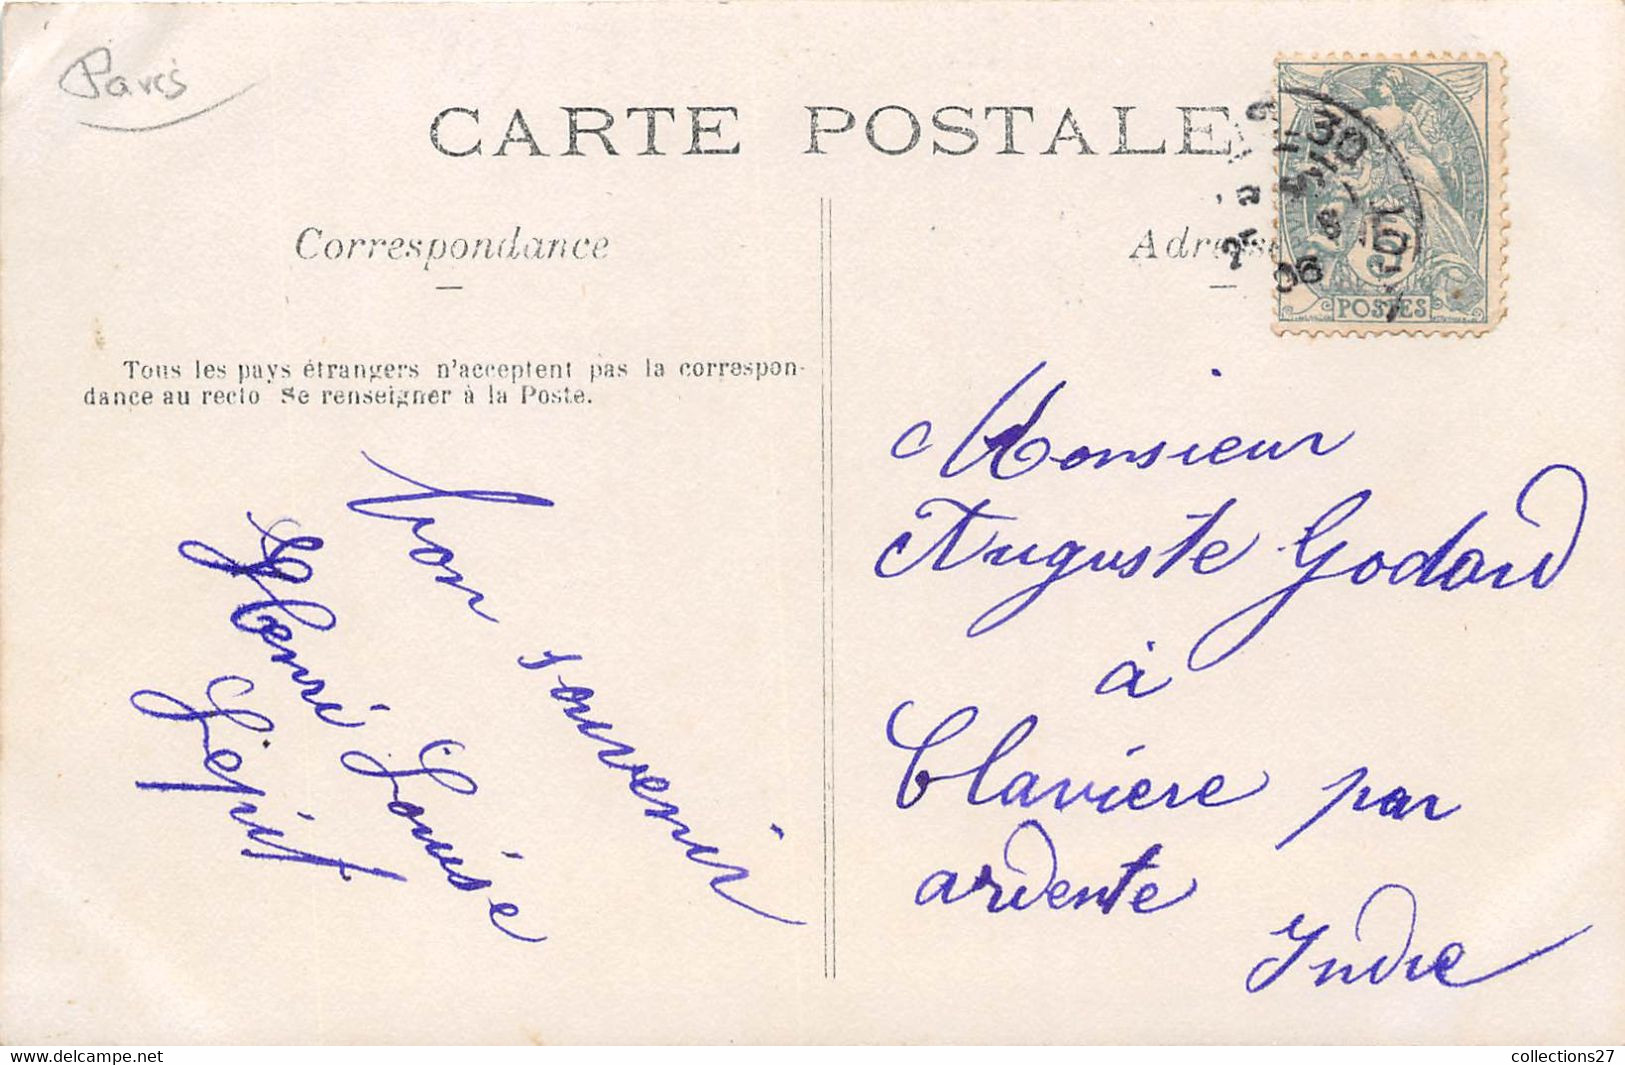 Paris
CARTE POSTALE
Correspondance
Adresse
Tous les pays étrangers n'acceptent pas la correspon-
dance au recto Se renseigner à la Poste.
bon souvenir
Henri Louise
Monsieur
Auguste Godard
à
Clavière par
ardente
Indre
POSTES
30
06
www.delcampe.net
collections27